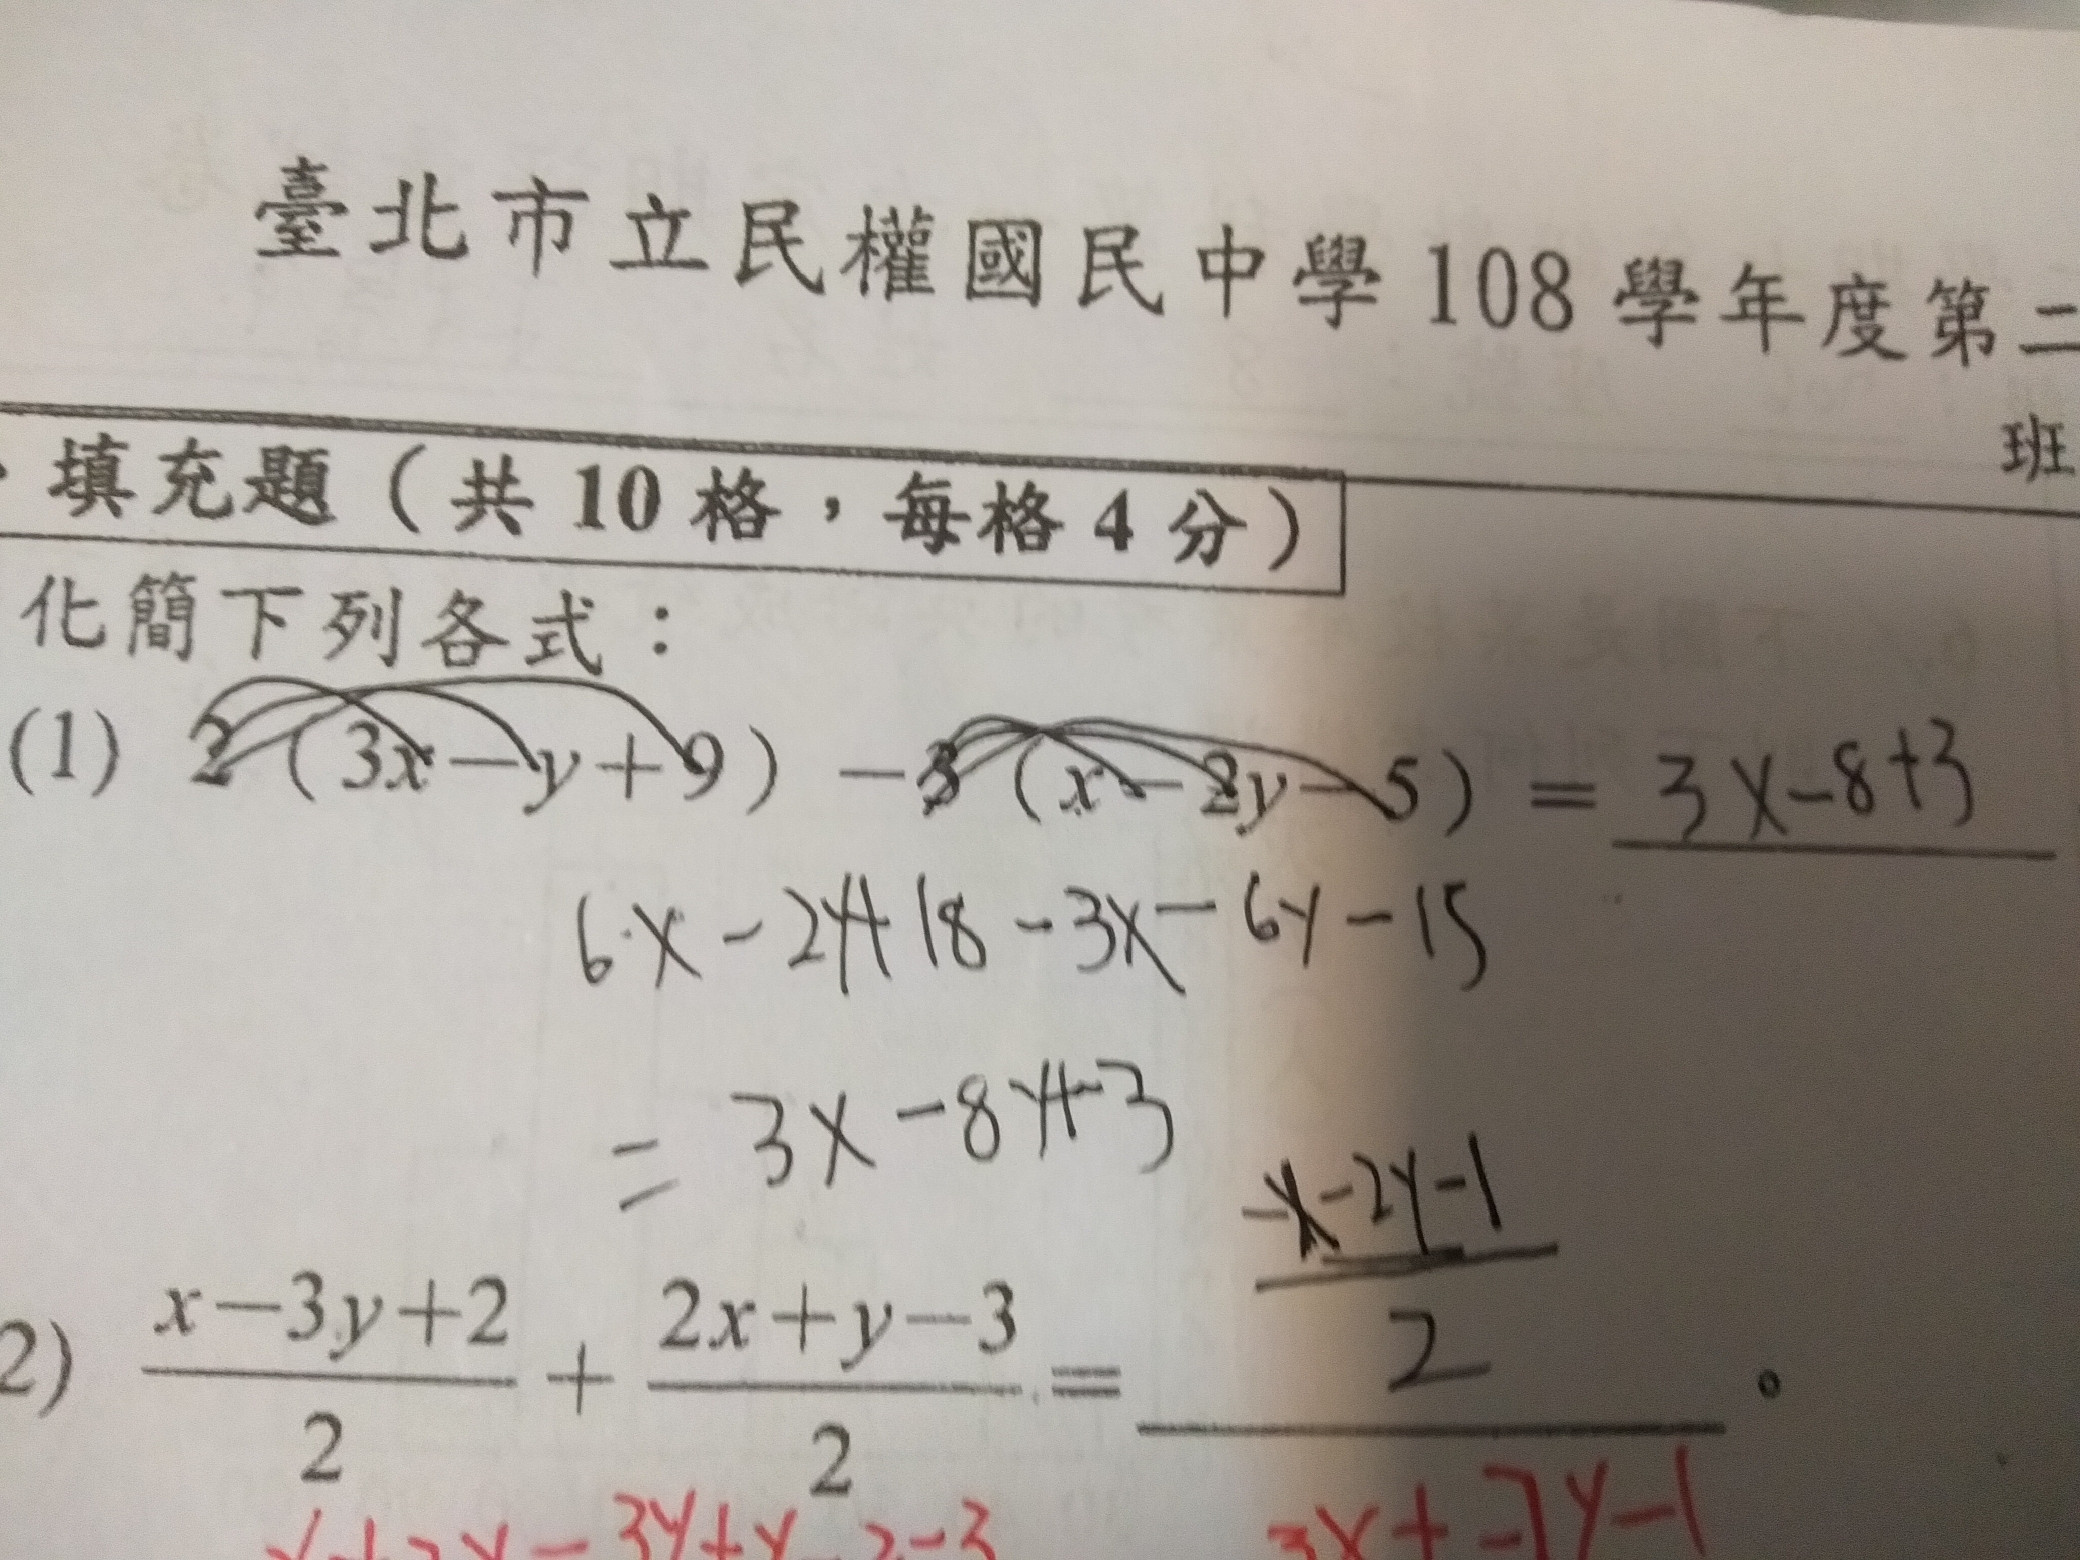 臺北市立民權國民中學108學年度第二
班
填充題（共10格，每格4分）
化簡下列各式：
(1) 2(3x-y+9)-3(x-2y-5)=3x-8+3
6x-2y+18-3x-6y-15
=3x-8y+3
2) \frac{x-3y+2}{2}+\frac{2x+y-3}{2}=\frac{-x-2y-1}{2}。
3y+y 2-3 3x+-7y-1